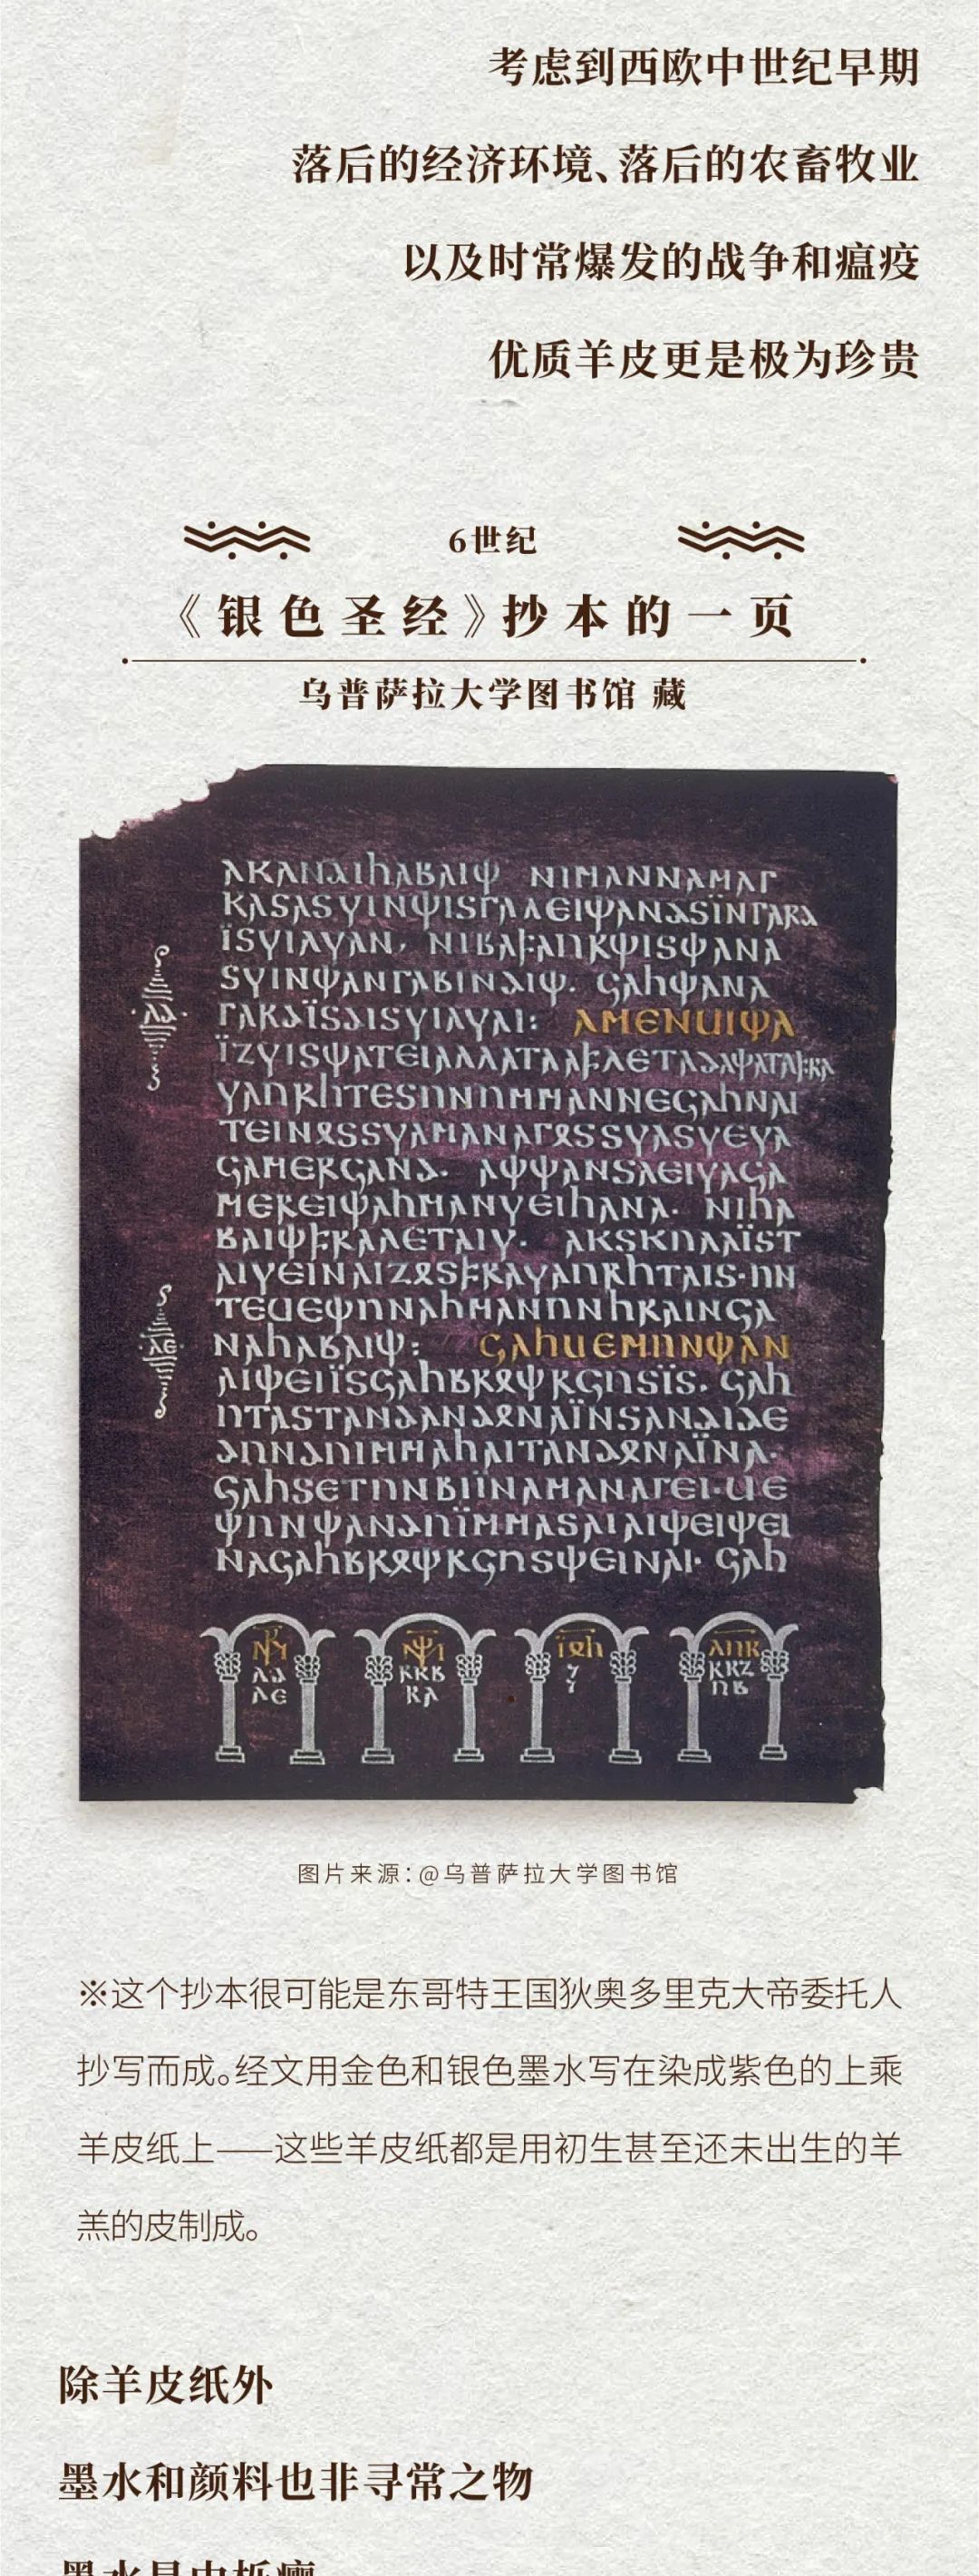 考虑到西欧中世纪早期
落后的经济环境、落后的农畜牧业
以及时常爆发的战争和瘟疫
优质羊皮更是极为珍贵
6世纪
《银色圣经》抄本的一页
乌普萨拉大学图书馆 藏
𐌰𐌺𐌰𐌽𐌳𐌹𐌷𐌰𐌱𐌰𐌹𐌸 𐌽𐌹𐌼𐌰𐌽𐌽𐌰𐌼𐌰𐌲
𐌺𐌰𐍃𐌰𐍃𐍅𐌹𐌽𐌸𐌹𐍃𐌲𐌰𐌻𐌴𐌹𐌸𐌰𐌽𐌳𐍃𐌹̈𐌽𐌲𐌰𐍂𐌳
𐌹̈𐍃𐍅𐌹𐌻𐍅𐌰𐌽· 𐌽𐌹𐌱𐌰𐍆𐌰𐌿𐍂𐌸𐌹𐍃𐌸𐌰𐌽𐌰
𐍃𐍅𐌹𐌽𐌸𐌰𐌽𐌲𐌰𐌱𐌹𐌽𐌳𐌹𐌸· 𐌾𐌰𐌷𐌸𐌰𐌽𐌰
𐌲𐌰𐍂𐌳𐌹̈𐍃𐌳𐌹𐍃𐍅𐌹𐌻𐍅𐌰𐌹: 𐌰𐌼𐌴𐌽𐌵𐌹𐌸𐌰
𐌹̈𐌶𐍅𐌹𐍃𐌸𐌰𐍄𐌴𐌹𐌰𐌻𐌻𐌰𐍄𐌰𐌰𐍆𐌻𐌴𐍄𐌰𐌳𐌰𐌸𐌰𐍄𐌰𐍆𐍂𐌰
𐍅𐌰𐌿𐍂𐌷𐍄𐌴𐍃𐌿𐌽𐌿𐌼𐌼𐌰𐌽𐌽𐌴𐌾𐌰𐌷𐌽𐌰𐌹
𐍄𐌴𐌹𐌽𐍉𐍃𐍃𐍅𐌰𐌼𐌰𐌽𐌰𐌲𐍉𐍃𐍃𐍅𐌰𐍃𐍅𐌴𐍅𐌰
𐌾𐌰𐌼𐌴𐍂𐌾𐌰𐌽𐌳· 𐌰𐌸𐌸𐌰𐌽𐍃𐌰𐌴𐌹𐍅𐌰𐌾𐌰
𐌼𐌴𐍂𐌴𐌹𐌸𐌰𐌷𐌼𐌰𐌽𐍅𐌴𐌹𐌷𐌰𐌽𐌰· 𐌽𐌹𐌷𐌰
𐌱𐌰𐌹𐌸𐍆𐍂𐌰𐌻𐌴𐍄𐌰𐌹𐍅· 𐌰𐌺𐍃𐌺𐌿𐌻𐌰𐌹̈𐍃𐍄
𐌰𐌹𐍅𐌴𐌹𐌽𐌰𐌹𐌶𐍉𐍃𐍆𐍂𐌰𐍅𐌰𐌿𐍂𐌷𐍄𐌰𐌹𐍃·𐌿𐌽
𐍄𐌴𐌵𐌴𐌸𐌿𐌽𐌰𐌷𐌼𐌰𐌽𐌿𐌽𐌷𐍂𐌰𐌹𐌽𐌾𐌰
𐌽𐌰𐌷𐌰𐌱𐌰𐌹𐌸: 𐌾𐌰𐌷𐌵𐌴𐌼𐌿𐌽𐌸𐌰𐌽
𐌰𐌹𐌸𐌴𐌹𐌹̈𐍃𐌾𐌰𐌷𐌱𐍂𐍉𐌸𐍂𐌾𐌿𐍃𐌹̈𐍃· 𐌾𐌰𐌷
𐌿𐍄𐌰𐍃𐍄𐌰𐌽𐌳𐌰𐌽𐌳𐍉𐌽𐌰𐌹̈𐌽𐍃𐌰𐌽𐌳𐌹𐌳𐌴
𐌳𐌿𐌽𐌳𐌿𐌹𐌼𐌼𐌰𐌷𐌰𐌹𐍄𐌰𐌽𐌳𐍉𐌽𐌰𐌹̈𐌽𐌰·
𐌾𐌰𐌷𐍃𐌴𐍄𐌿𐌽𐌱𐌹𐌹̈𐌽𐌰𐌼𐌰𐌽𐌰𐌲𐌴𐌹·𐌵𐌴
𐌸𐌿𐌽𐌸𐌰𐌽𐌳𐌿𐌹̈𐌼𐌼𐌰𐍃𐌰𐌹𐌰𐌹𐌸𐌴𐌹𐌸𐌴𐌹
𐌽𐌰𐌾𐌰𐌷𐌱𐍂𐍉𐌸𐍂𐌾𐌿𐍃𐌸𐌴𐌹𐌽𐌰𐌹· 𐌾𐌰𐌷
图片来源：@乌普萨拉大学图书馆
※这个抄本很可能是东哥特王国狄奥多里克大帝委托人
抄写而成。经文用金色和银色墨水写在染成紫色的上乘
羊皮纸上——这些羊皮纸都是用初生甚至还未出生的羊
羔的皮制成。
除羊皮纸外
墨水和颜料也非寻常之物